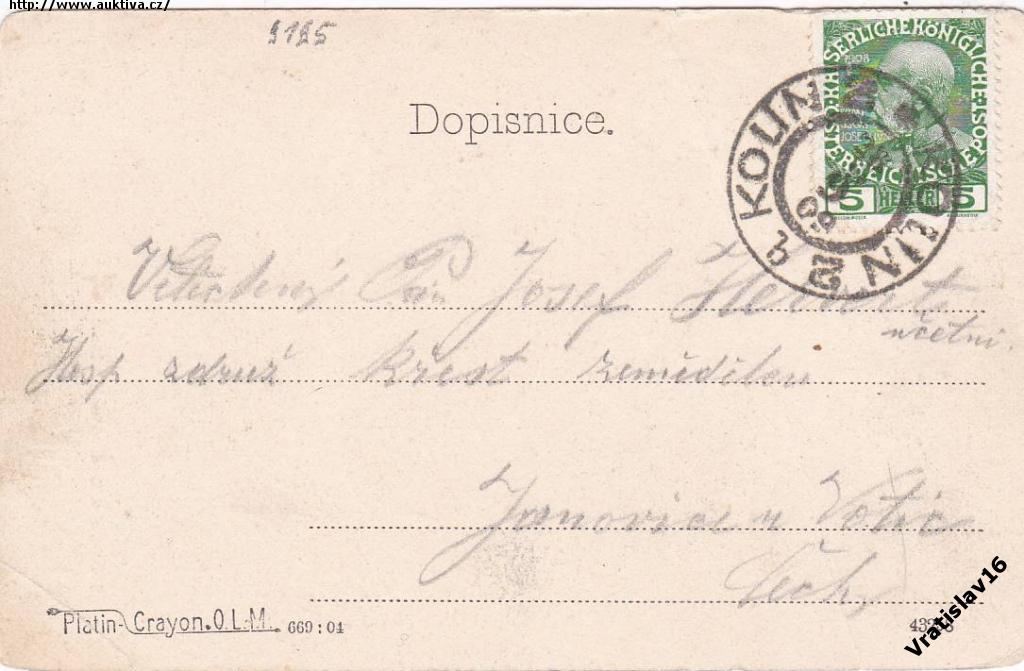 http://www.auktiva.cz/
9195
Dopisnice.
KAISERLICHE KÖNIGLICHE ÖSTERREICHISCHE POST
1908
5 HELLER 5
KOLIN 2 KOLIN 2
09
Pán Josef
účetní.
Hosp zdruz křest zemědělců
Janovice u Votic
Čechy
Platin-Crayon.O.L.M. 669:04
Vratislav16